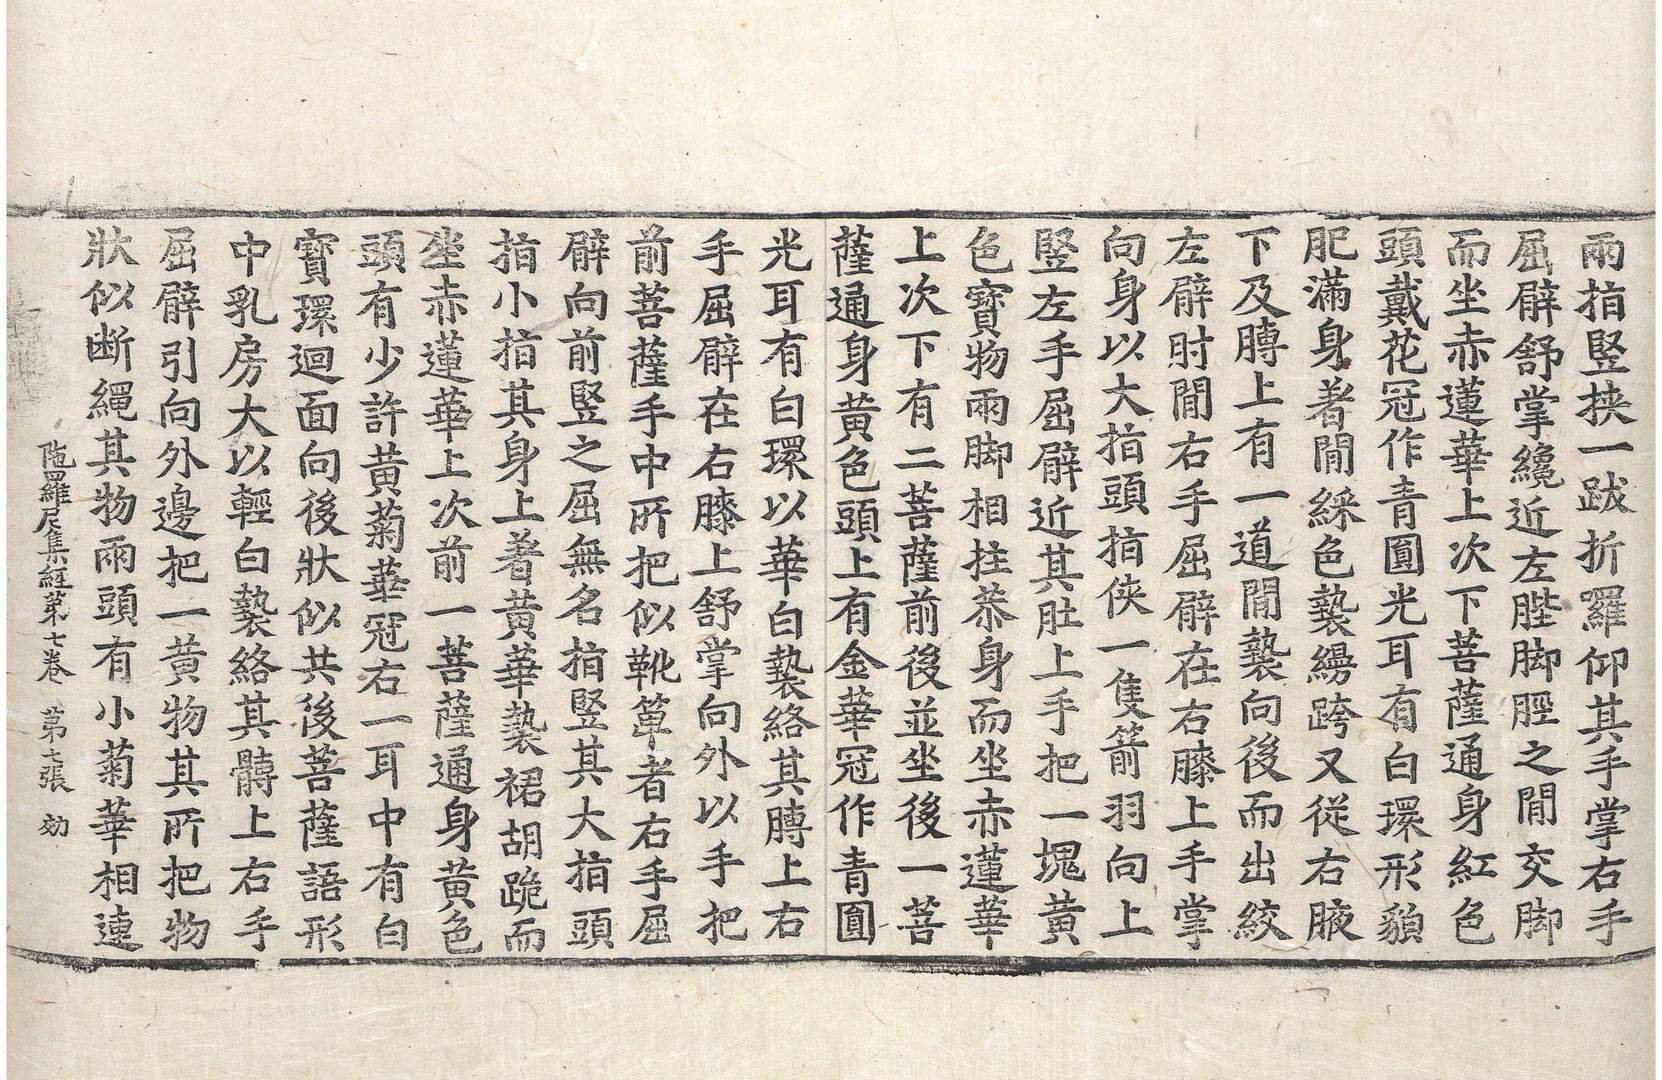 兩指竪挾一跋折羅仰其手掌右手
屈臂舒掌纔近左髀脚脛之閒交脚
而坐赤蓮華上次下菩薩通身紅色
頭戴花冠作青圓光耳有白環形貌
肥滿身著閒綵色褺縵跨又從右腋
下及膊上有一道閒褺向後而出絞
左臂肘閒右手屈臂在右膝上手掌
向身以大指頭指俠一隻箭羽向上
竪左手屈臂近其肚上手把一塊黃
色寶物兩脚相拄恭身而坐赤蓮華
上次下有二菩薩前後並坐後一菩
薩通身黃色頭上有金華冠作青圓
光耳有白環以華白褺絡其膊上右
手屈臂在右膝上舒掌向外以手把
前菩薩手中所把似靴簞者右手屈
臂向前竪之屈無名指竪其大指頭
指小指其身上著黃華褺裙胡跪而
坐赤蓮華上次前一菩薩通身黃色
頭有少許黃菊華冠右一耳中有白
寶環迴面向後狀似共後菩薩語形
中乳房大以輕白褺絡其髆上右手
屈臂引向外邊把一黃物其所把物
狀似斷繩其物兩頭有小菊華相連
陁羅尼集經第七卷 第七張 効